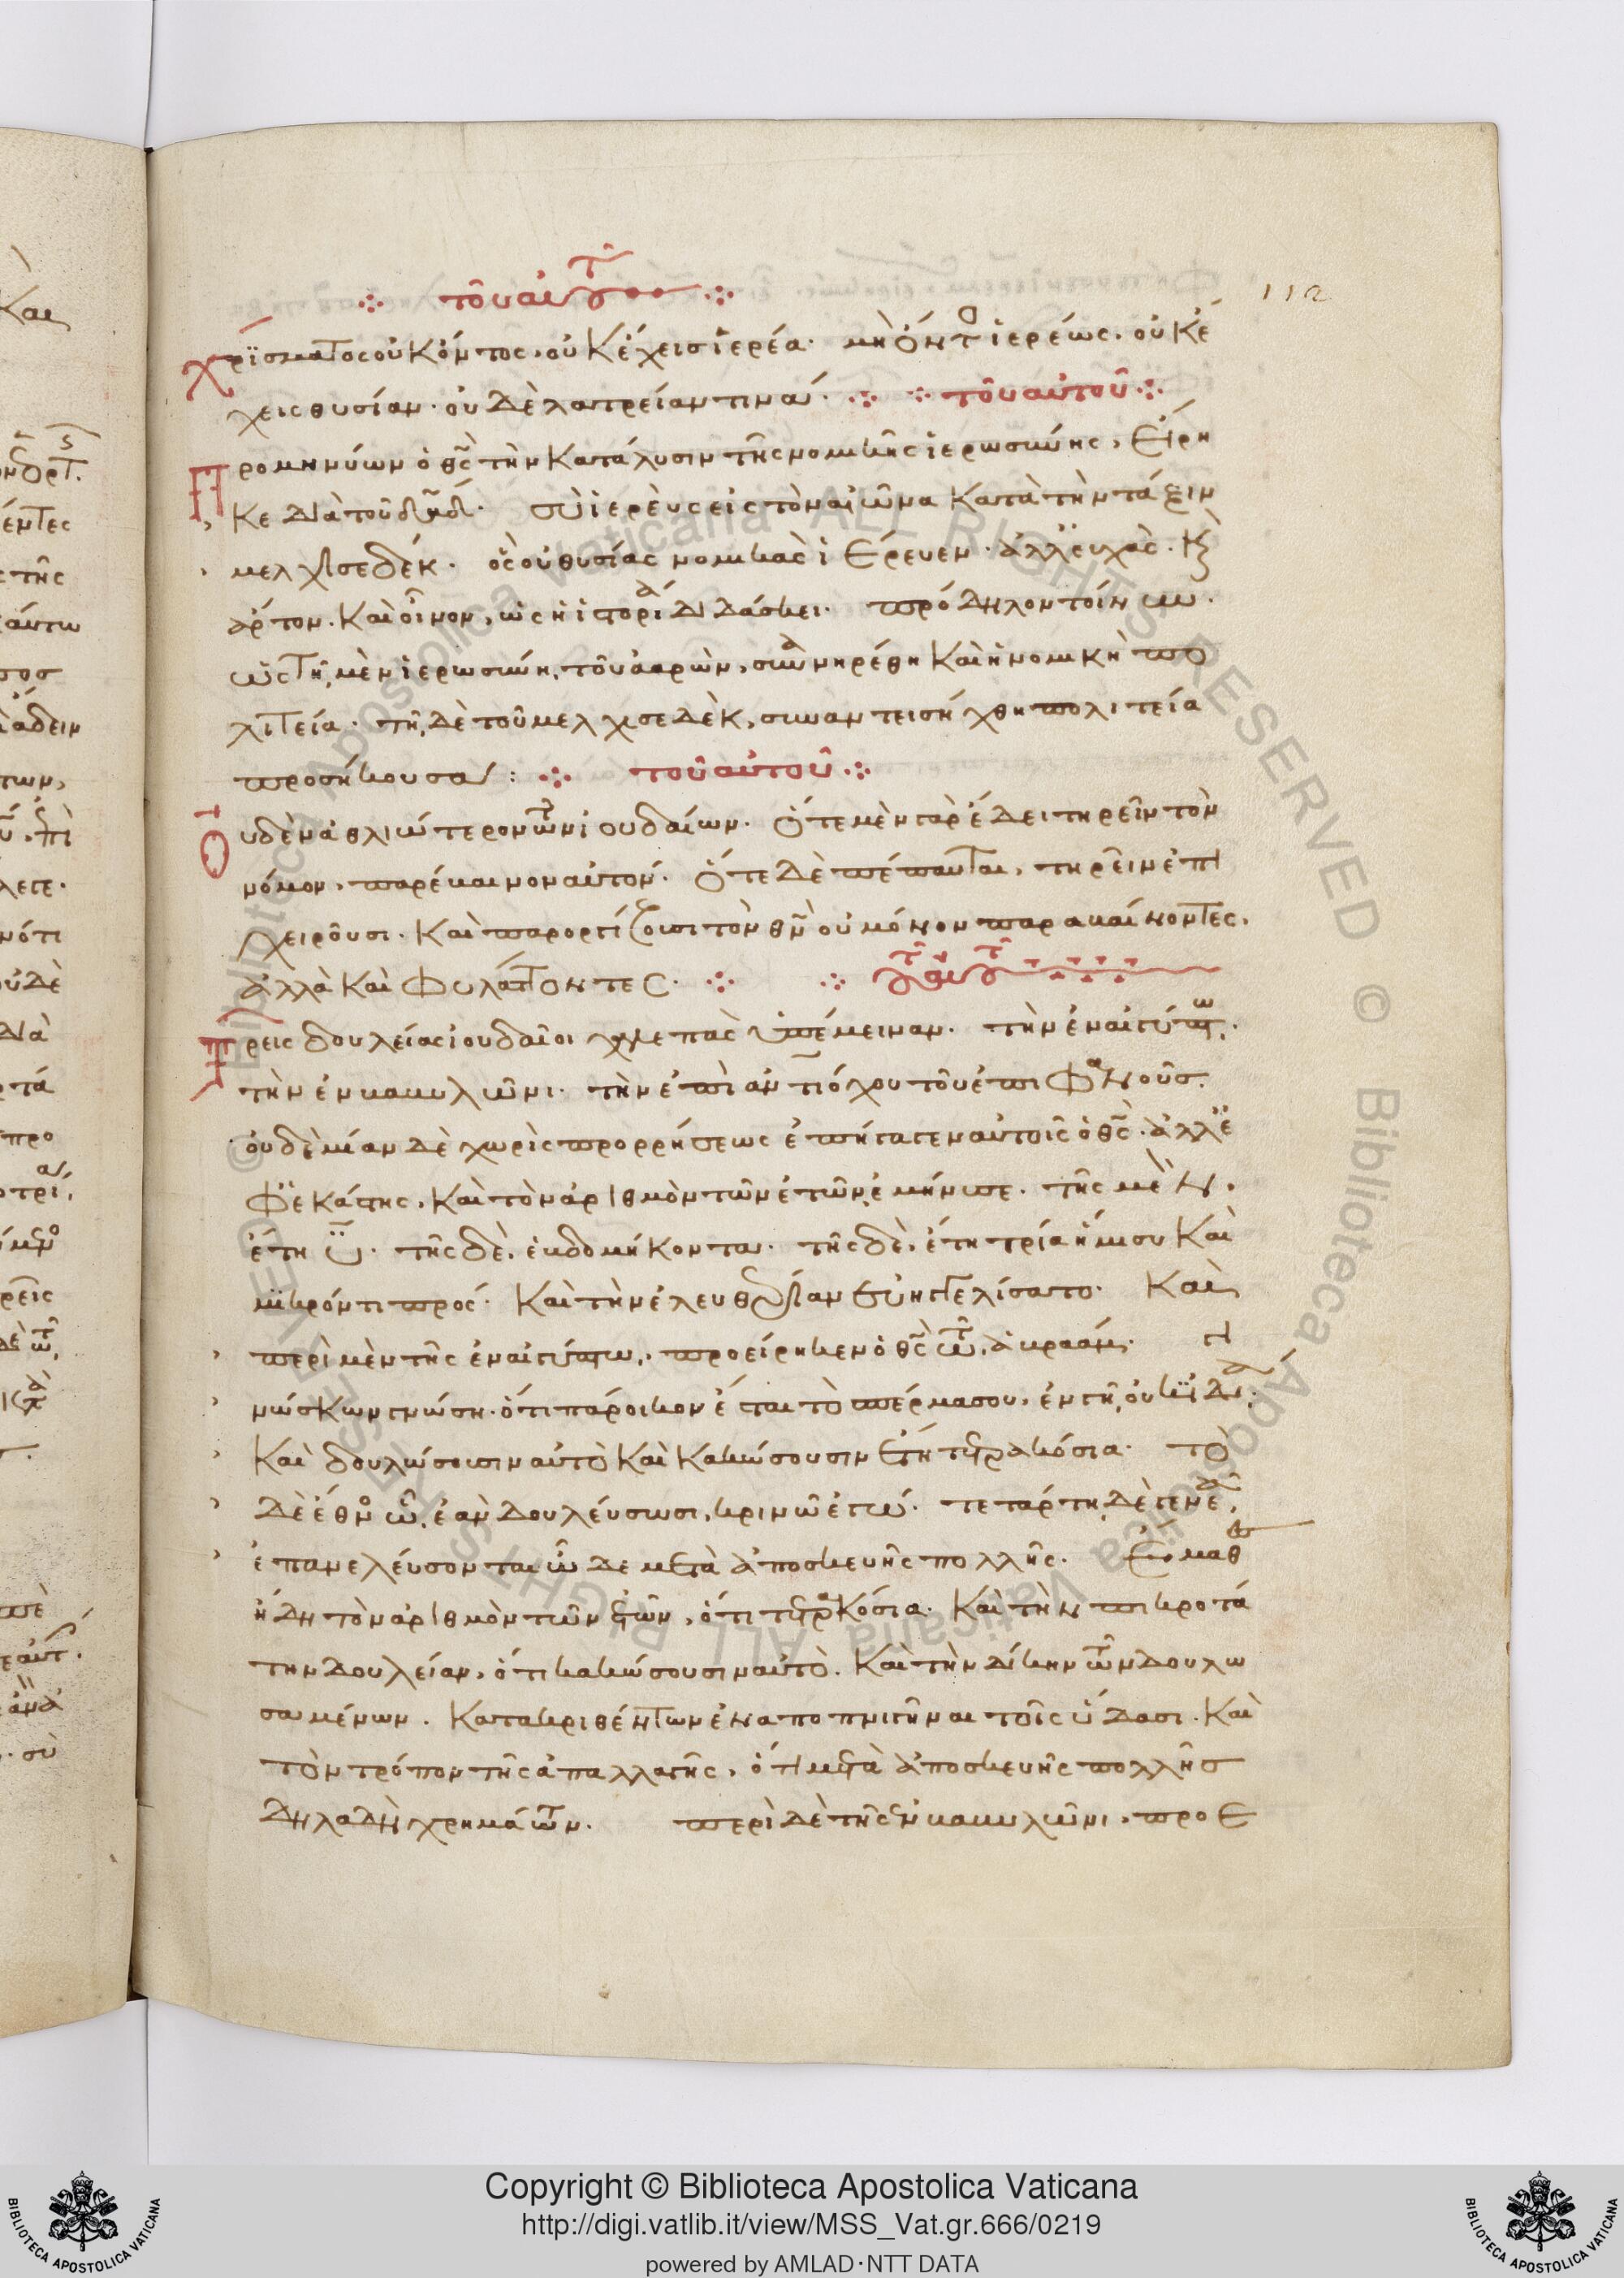 τοῦ αὐτοῦ
112
χρίσματος οὐκ ὄντος, οὐκ ἔχεις ἱερέα· μὴ ὄντος ἱερέως, οὐκ ἔ
χεις θυσίαν· οὐδὲ λατρείαν τινά· τοῦ αὐτοῦ
Προμηνύων ὁ θς τὴν κατάλυσιν τῆς νομικῆς ἱερωσύνης, εἴρη
κε διὰ τοῦ δαδ· σὺ ἱερεὺς εἰς τὸν αἰῶνα κατὰ τὴν τάξιν
μελχισεδέκ· ὃς οὐ θυσίας νομικὰς ἱέρευεν· ἀλλ' εὐχὰς· κ
ἄρτον· καὶ οἶνον, ὡς ἡ ἱστορία διδάσκει· πρόδηλον τοίνυν·
ὡς τῆ μὲν ἱερωσύνη τοῦ ἀαρών, συνανηρέθη καὶ ἡ νομικὴ πο
λιτεία· τῆ δὲ τοῦ μελχισεδέκ, συναντεισήχθη πολιτεία
προσήκουσα: τοῦ αὐτοῦ
Οὐδὲν ἀθλιώτερον τῶν ἰουδαίων· ὅτε μὲν γὰρ ἔδει τηρεῖν τὸν
νόμον, παρέβαινον αὐτόν· ὅτε δὲ πέπαυται, τηρεῖν ἐπι
χειροῦσι· καὶ παροργίζουσι τὸν θν οὐ μόνον παραβαίνοντες,
ἀλλὰ καὶ φυλάττοντες· τοῦ αὐτοῦ
Τρεῖς δουλείας ἰουδαῖοι χαλεπὰς ὑπέμειναν· τὴν ἐν αἰγύπτω·
τὴν ἐν βαβυλῶνι· τὴν ἐπὶ ἀντιόχου τοῦ ἐπιφανοῦς·
οὐδεμίαν δὲ χωρὶς προρρήσεως ἐπήγαγεν αὐτοῖς ὁ θς· ἀλλ' ἐ
φ' ἑκάστης, καὶ τὸν ἀριθμὸν τῶν ἐτῶν ἐμήνυσε· τῆς μὲν,
ἔτη υ· τῆς δὲ, ἑβδομήκοντα· τῆς δὲ, ἔτη τρία ἥμισυ καὶ
μικρόν τι πρός· καὶ τὴν ἐλευθερίαν εὐηγγελίσατο· καὶ
περὶ μὲν τῆς ἐν αἰγύπτω, προείρηκεν ὁ θς τῶ ἀβραάμ· γι
νώσκων γνώση· ὅτι πάροικον ἔσται τὸ σπέρμα σου, ἐν γῆ οὐκ ἰδία·
καὶ δουλώσουσιν αὐτὸ καὶ κακώσουσιν ἔτη τετρακόσια· τὸ
δὲ ἔθνος ὧ ἐὰν δουλεύσωσι, κρινῶ ἐγώ· τετάρτη δὲ γενεᾶ,
ἐπανελεύσονται ὧδε μετὰ ἀποσκευῆς πολλῆς· ἔμαθες
ἤδη τὸν ἀριθμὸν τῶν ἐτῶν, ὅτι τετρακόσια· καὶ τὴν πικροτά
την δουλείαν, ὅτι κακώσουσιν αὐτὸ· καὶ τὴν δίκην τῶν δουλω
σαμένων· κατακριθέντων ἐναποπνιγῆναι τοῖς ὕδασι· καὶ
τὸν τρόπον τῆς ἀπαλλαγῆς, ὅτι μετὰ ἀποσκευῆς πολλῆς
δηλαδὴ χρημάτων· περὶ δὲ τῆς ἐν βαβυλῶνι, προε
Copyright © Biblioteca Apostolica Vaticana
http://digi.vatlib.it/view/MSS_Vat.gr.666/0219
powered by AMLAD·NTT DATA